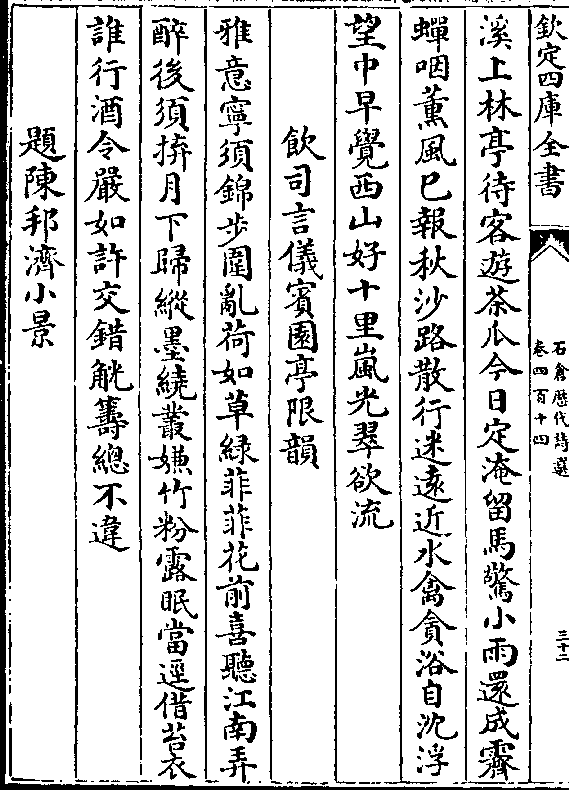 欽定四庫全書
石倉歴代詩選
卷四百十四
三十二
溪上林亭待客遊茶瓜今日定淹留馬驚小雨還成霽
蟬咽薫風已報秋沙路散行迷遠近水禽貪浴自沈浮
望中早覺西山好十里嵐光翠欲流
飲司言儀賓園亭限韻
雅意寧須錦步圍亂荷如草緑菲菲花前喜聽江南弄
醉後須拚月下歸縱墨繞叢嫌竹粉露眠當逕借苔衣
誰行酒令嚴如許交錯觥籌總不違
題陳邦濟小景